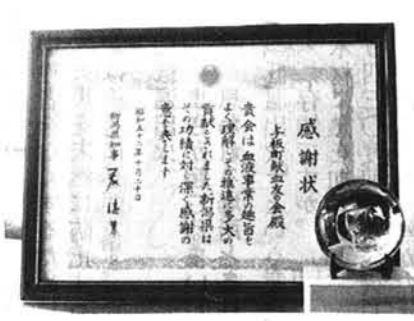 感謝状
与板町献血友の会殿
貴会は血液事業の趣旨を
よく理解しその推進に多大の
貢献をされました新潟県は
その功績に対し深く感謝の
意を表します
昭和五十二年十月二十日
新潟県知事 君 健男